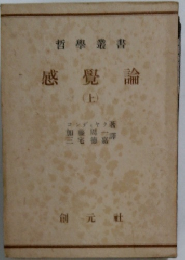 哲學叢書
感覺論
(上)
コンディヤク著
加藤周一
三宅德嘉
譯
創元社